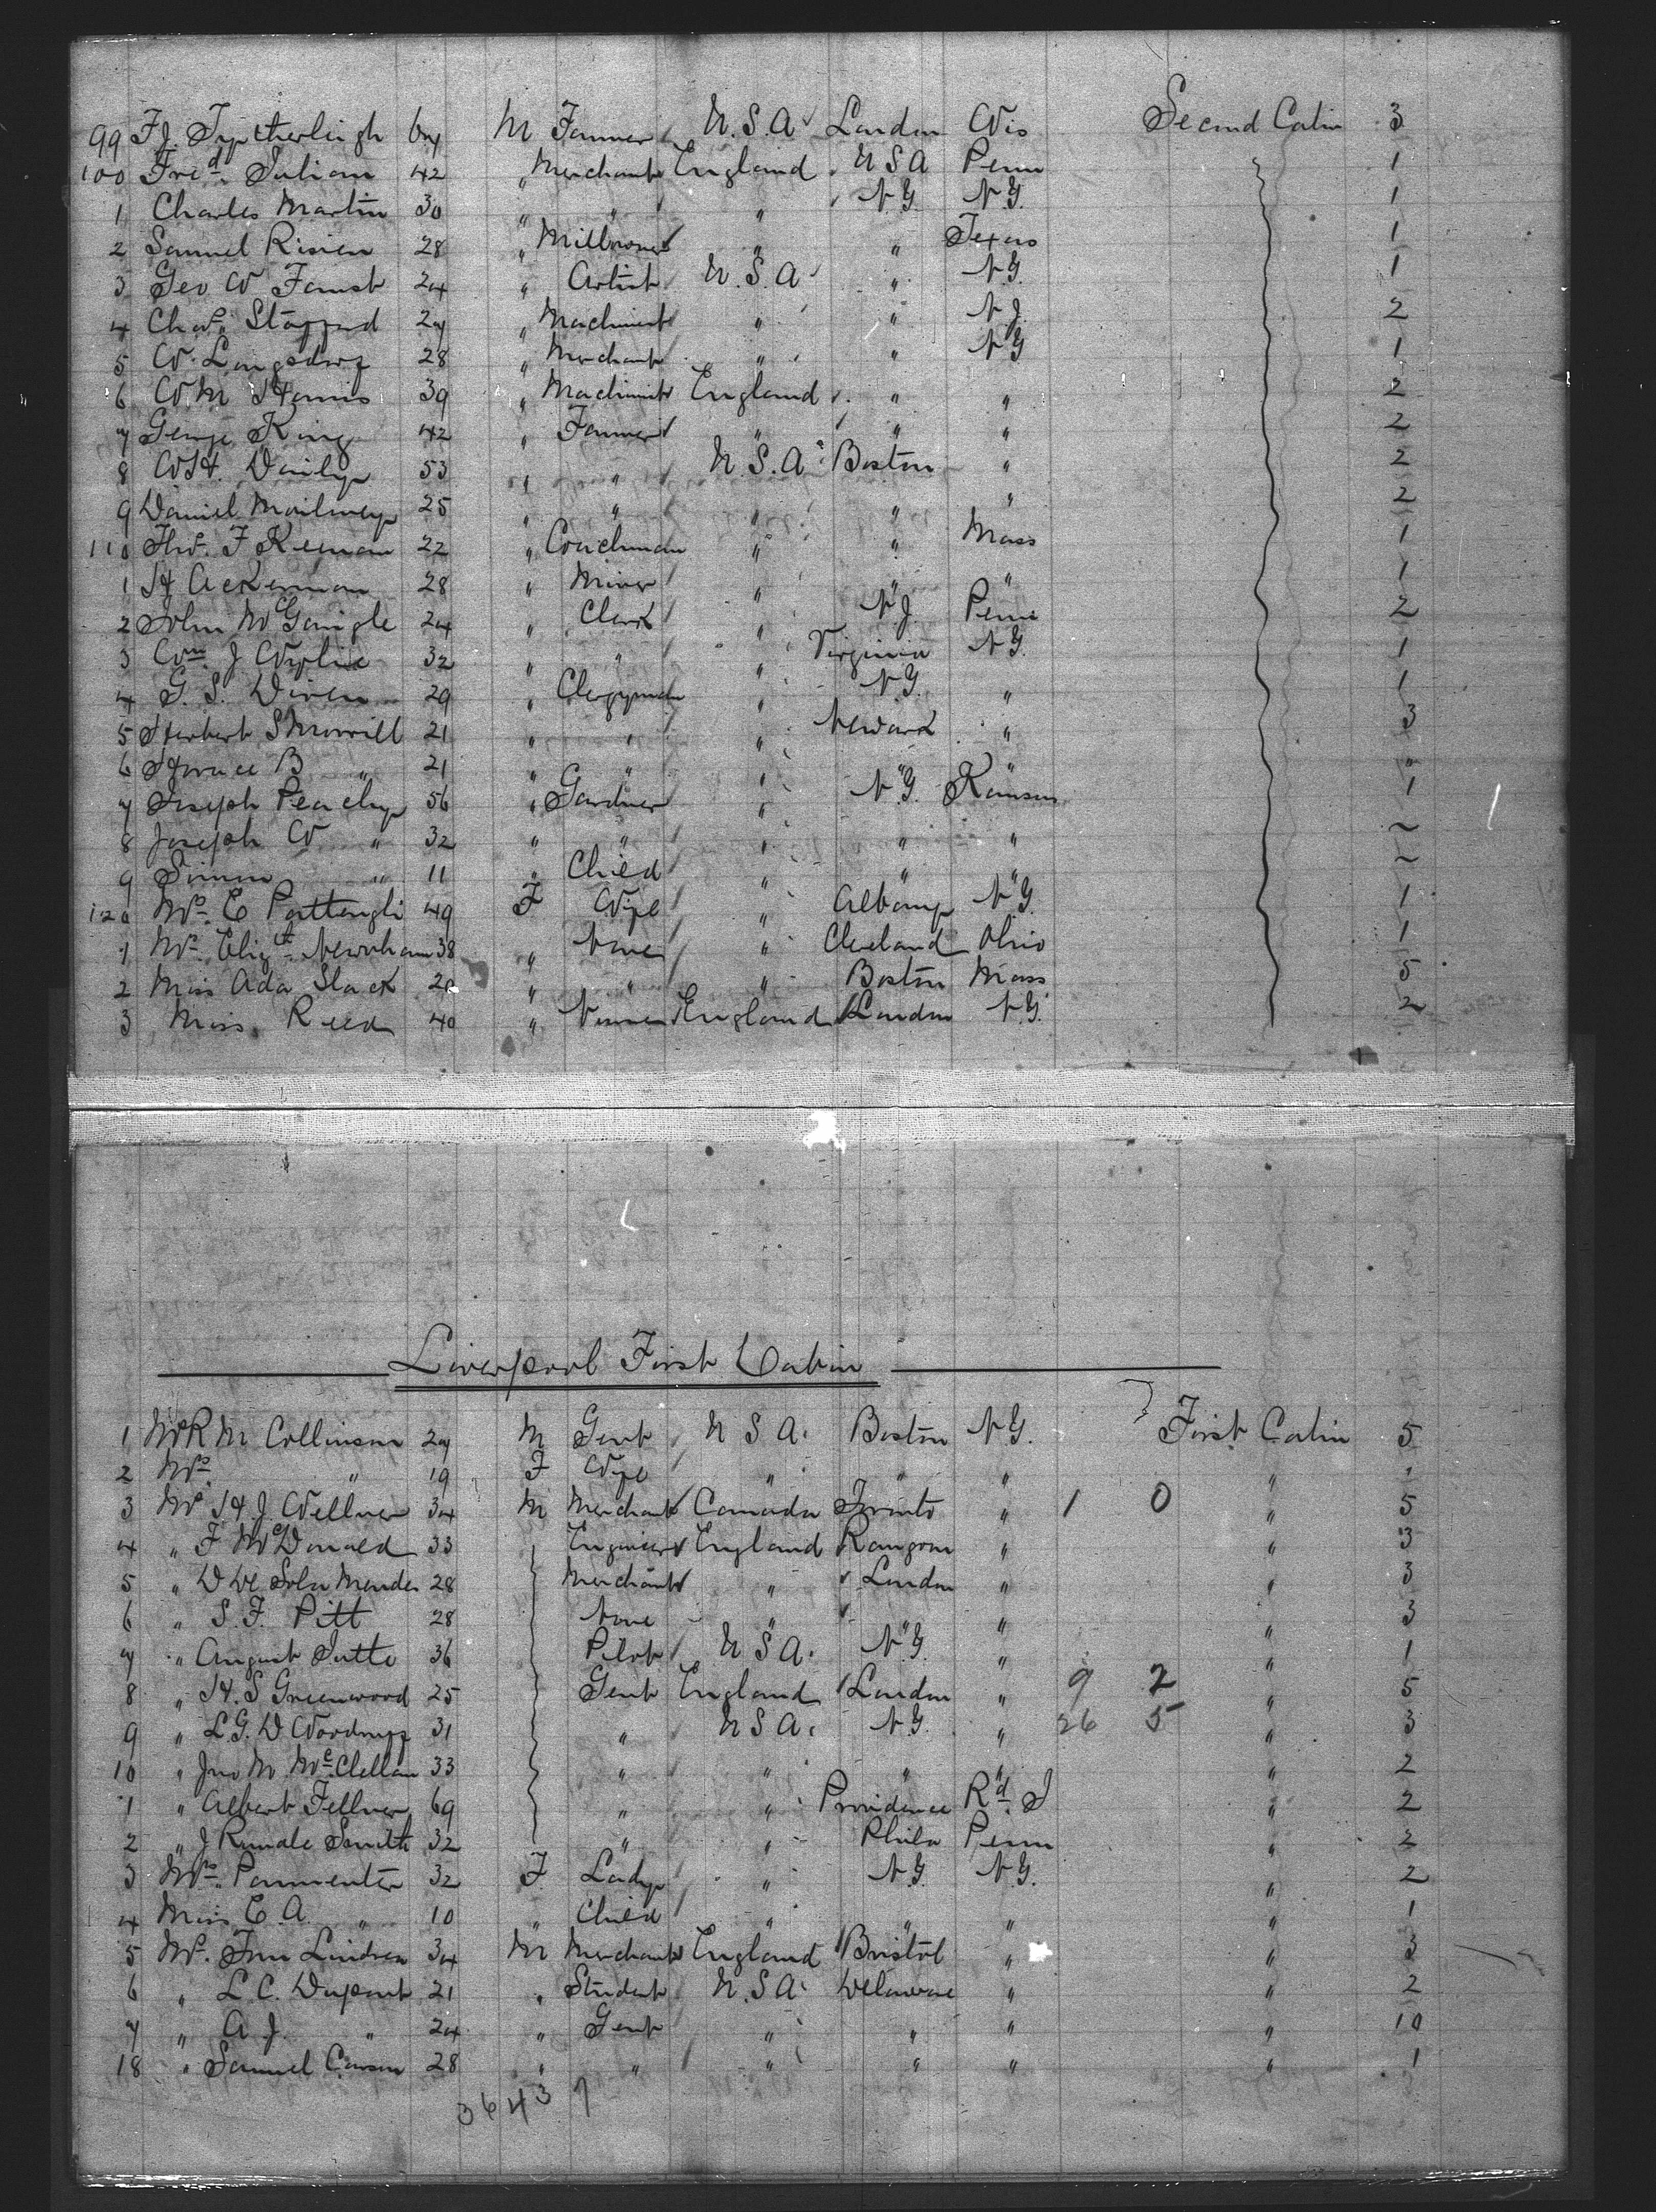 99 F.J. Tytherleigh 67 M Farmer U.S.A London Wis Second Cabin 3
100 Fred. Julian 42 " Merchant England USA Penn 1
1 Charles Martin 30 " " " N.Y. N.Y. 1
2 Samuel Risien 28 " Millowner " " Texas 1
3 Geo W Faust 24 " Artist U.S.A " N.Y. 1
4 Chas. Stoppard 27 " Machinist " " N.J. 2
5 W. Langsdorf 28 " Merchant " " N.Y 1
6 W M Harris 39 " Machinist England " " 2
7 George King 42 " Farmer " " " 2
8 W H. Daily 53 " " U.S.A Boston " 2
9 Daniel 25 " " " " " 2
110 Thos. F Keenan 22 " Coachman " " Mass 1
1 H Ackerman 28 " Miner " " " 1
2 John McGonigle 24 " Clerk " N.J. Penn 2
3 Wm. J Wylie 32 " " " Virginia N.Y. 1
4 G. S. Diven 29 " Clergyman " N.Y. " 1
5 Herbert S Morrill 21 " " " Newark " 3
6 Horace B " 21 " " " " " "
7 Joseph Peachy 56 " Gardner " N.Y. Kansas 1
8 Joseph W " 32 " " " " " ~
9 Simon " 11 " Child " " " ~
120 Mrs. E Pattengli 49 F Wife " Albany N.Y. 1
1 Mrs. Elizth. Newnham 38 " None " Cleveland Ohio 1
2 Miss Ada Slack 20 " " " Boston Mass 5
3 Miss Reed 40 " England London N.Y. 2
Liverpool First Cabin
1 Mr R M Collinson 27 M Gent U S A. Boston N.Y. First Cabin 5
2 Mrs. " 19 F Wife " " " " "
3 Mr H.J. Wellner 34 M Merchant Canada Toronto " 1 0 " 5
4 " F McDonald 33 Engineer England Rangoon " " 3
5 " D De Sola Mendes 28 Merchant " London " " 3
6 " S. F. Pitt 28 None " " " " 3
7 " August 36 Pilot U S A. N.Y. " " 1
8 " H. S Greenwood 25 Gent England London " 9 2 " 5
9 " L.G. D Woodruff 31 " U S A. N.Y. " 26 5 " 3
10 " Jno M. McClellan 33 " " " " " 2
1 " Albert Fellner 69 " " Providence Rd. I " 2
2 " J Rundle Smith 32 " " Phila Penn " 2
3 Mrs. Parmenter 32 F Lady " N.Y. N.Y. " 2
4 Miss E A. " 10 " Child " " " " 1
5 Mr. Jno Lindrea 34 M Merchant England Bristol " " 3
6 " L.C. Dupont 21 " Student U.S.A Delaware " " 2
7 " A J. " 24 " Gent " " " " 10
18 " Samuel Carson 28 " " " " " " 1
3643 7